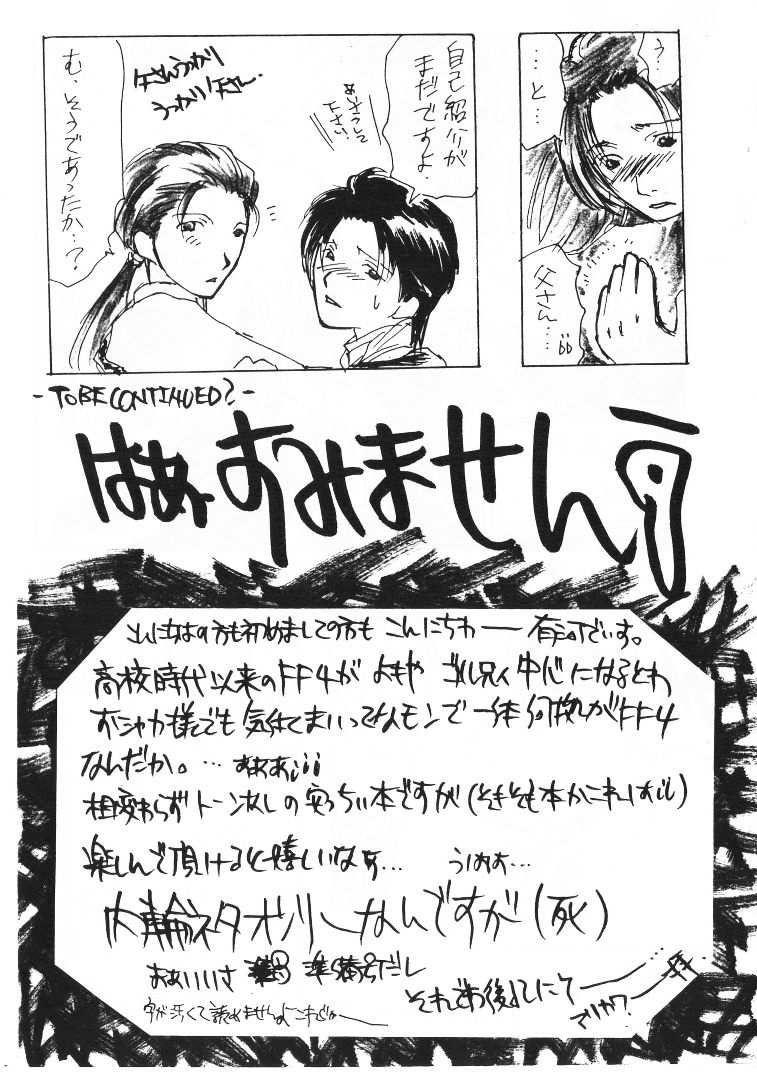 う…
…と…
父さん…
自己紹介が
まだですよ。
あいさつして
下さい
父さんうっかり
うっかり父さん。
む、そうであったか…？
- TO BE CONTINUED? -
はあ、すみません
こんにちはの方も初めましての方も こんにちわー です。
高校時代以来のFF4が よもや ゴル兄ィ中心になるとわ
おシャカ様でも気付くてまいってなモンで 一体何故がFF4
なんだか。… ああぁ
相変わらずトーンなしの安っちい本ですが(そもそも本かこれはおい)
楽しんで頂けると嬉しいなぁ… うわぁ…
内輪ネタオンリーなんですが(死)
まあいいさ 準備号だし
それでわ後よしにてー
字が汚くて読めませんよこれじゃー